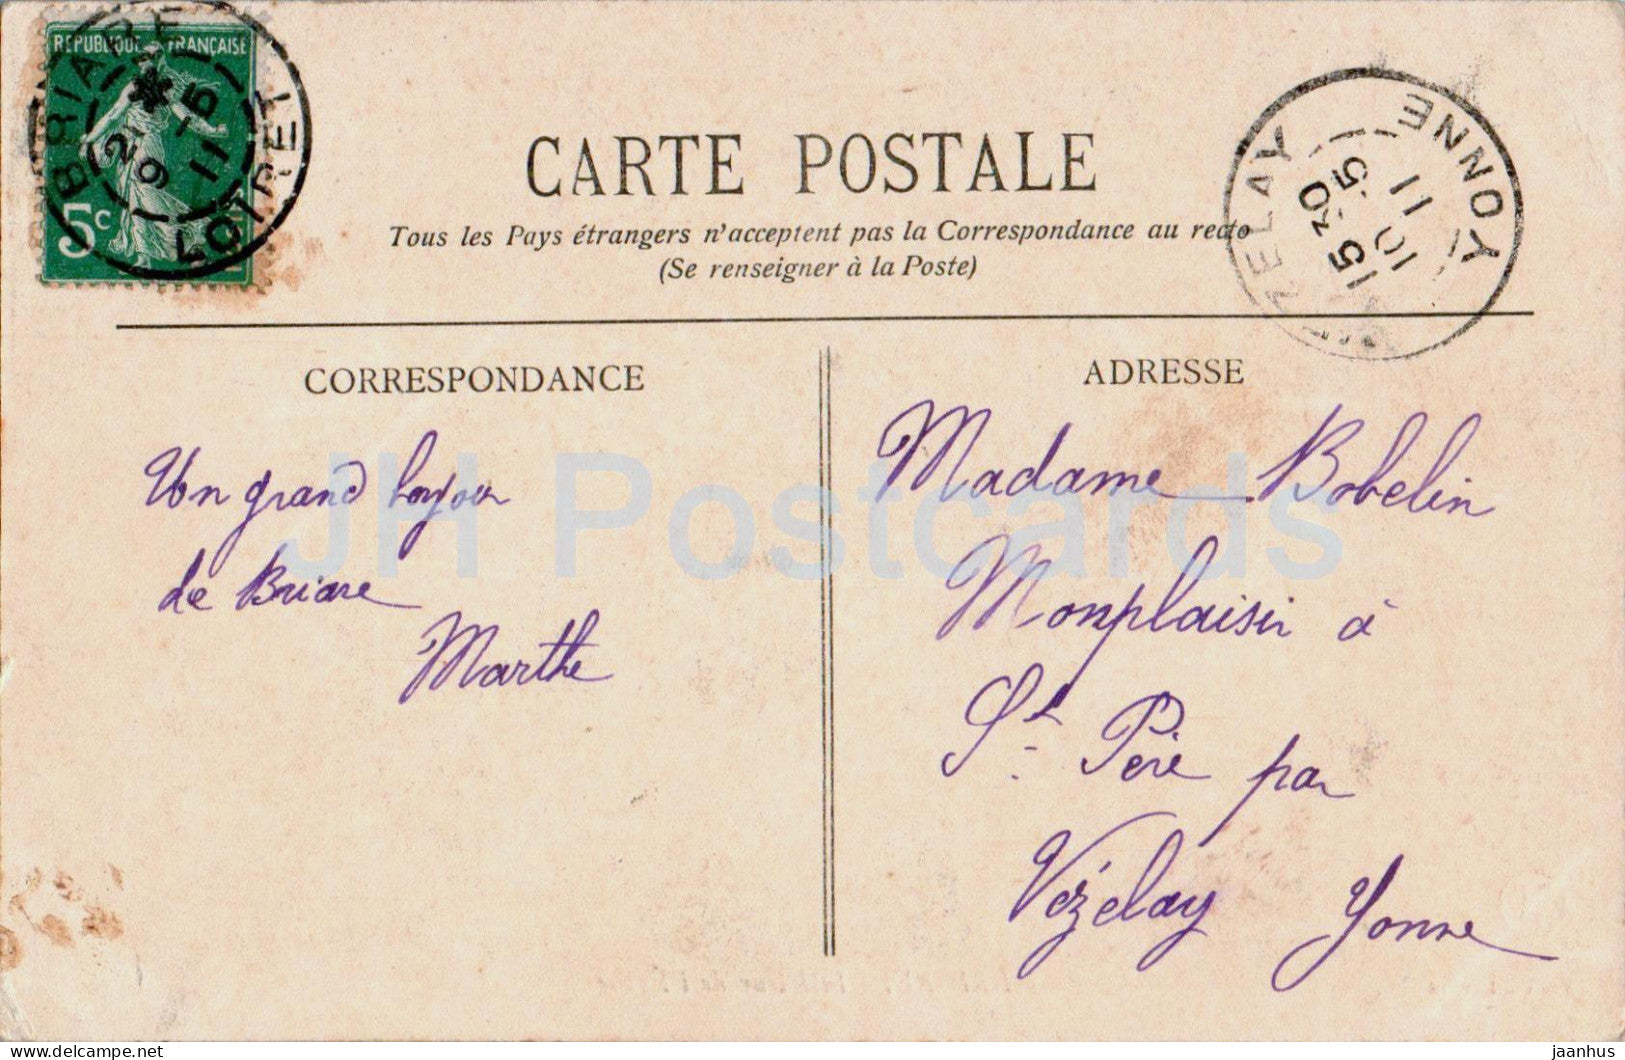 REPUBLIQUE FRANÇAISE
5c
BRIARE
LOIRET
9 -5
11
CARTE POSTALE
Tous les Pays étrangers n'acceptent pas la Correspondance au recto
(Se renseigner à la Poste)
VEZELAY
YONNE
15 30
10 -5
11
CORRESPONDANCE
ADRESSE
Un grand bonjour
de Briare
Marthe
Madame Bobelin
Monplaisir à
St Père par
Vézelay Yonne
JH Postcards
delcampe.net
jaanhus